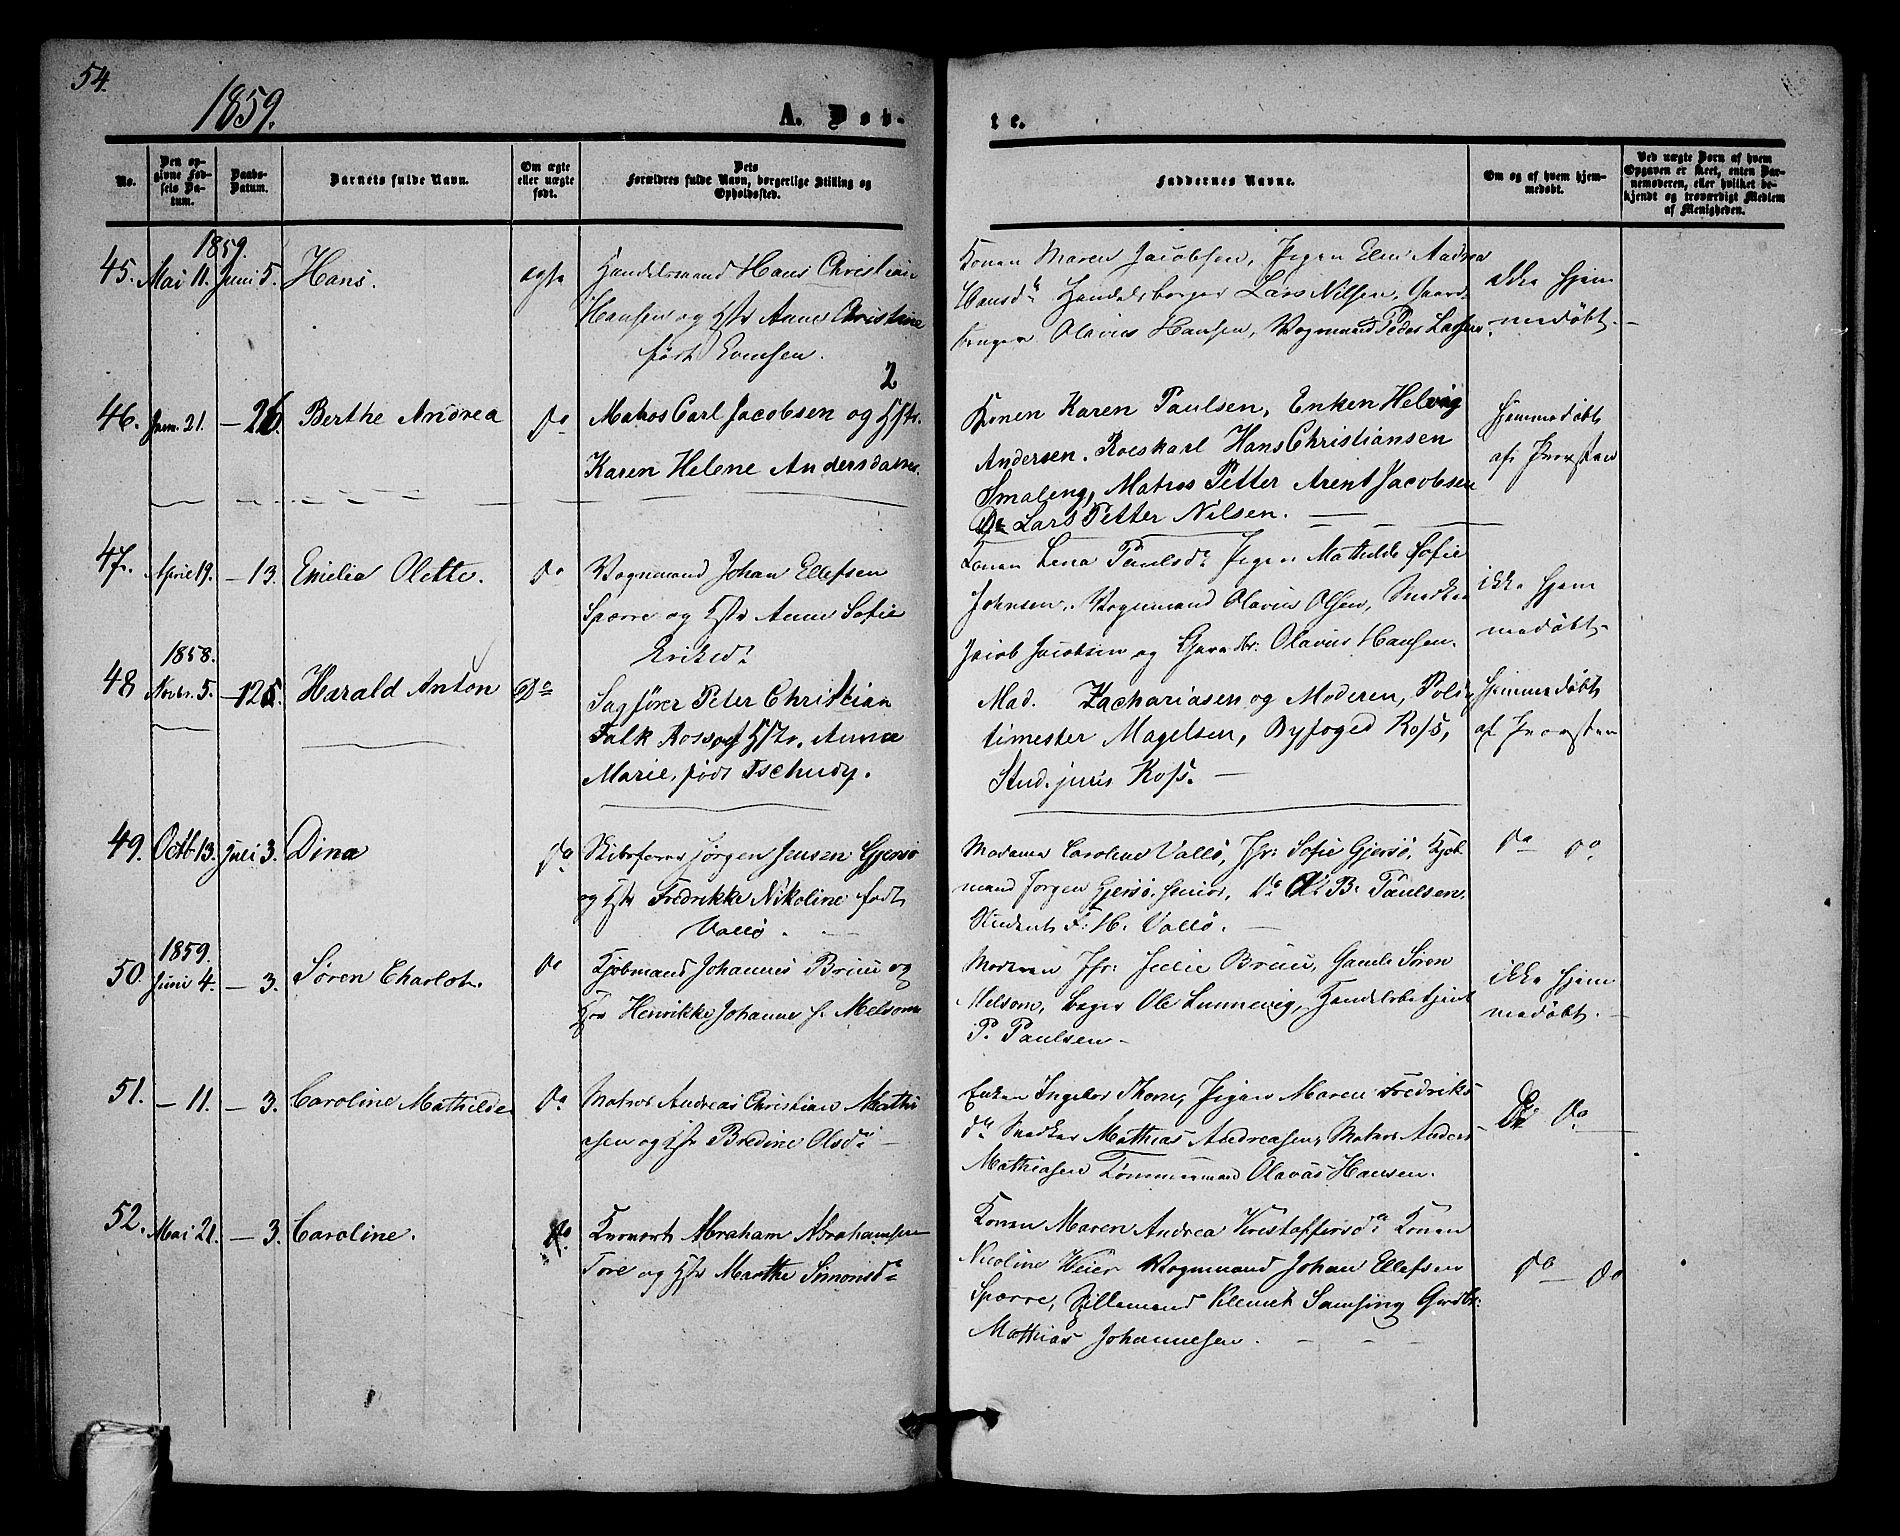 54.
1859.
A. Døb-
te.
No.
Den op-
givne Fød-
sels Da-
tum.
Daabs-
Datum.
Barnets fulde Navn.
Om ægte
eller uægte
født.
Dets
Forældres fulde Navn, borgerlige Stilling og
Opholdssted.
Faddernes Navne.
Om og af hvem hjem-
medøbt.
Ved uægte Børn af hvem
Opgaven er skeet, enten Bar-
nemoderen, eller hvilket be-
kjendt og troværdigt Medlem
af Menigheden.
1859.
45. Mai 11. Juni 5. Hans.
ægte
Handelsmand Hans Christian
Hansen og Hstr Anne Christine
født Evensen.
Konen Maren Jacobsen, Pigen Elen Andrea
Hansdr Handelsborger Lars Nilsen, Gaard-
bruger Olavus Hansen, Vognmand Peder Larsen
ikke hjem
medøbt.
2
46. Jan. 21. — 26. Berthe Andrea
do
Matros Carl Jacobsen og Hstr.
Karen Helene Andersdatter.
Konen Karen Paulsen, Enken Helvig
Andersen, Roeskarl Hans Christiansen
Smaleng, Matros Petter Arent Jacobsen
Do Lars Petter Nilsen.
Hjemmedøbt
af Provsten
47. April 19. — 13. Emelia Olette.
do
Vognmand Johan Ellefsen
Spærre og Hstr Anne Sofie
Eriksdr
Konen Lena Paulsdr Pigen Mathilde Sofie
Johnsen, Vognmand Olavus Olsen, Snedker
Jacob Jacobsen og Gaardbr: Olavus Hansen.
ikke hjem
medøbt
1858.
48 Novbr. 5. — 12. Harald Anton
Do
Sagfører Peter Christian
Falk Ross og Hstr. Anna
Marie, født Tschudy.
Mad. Zachariasen og Moderen, Poli-
timester Magelsen, Byfoged Ross,
Stud. juris Ross.
Hjemmedøbt
af Provsten
49. Octb 13. Juli 3. Dina
do
Skibsfører Jørgen Jensen Gjersø
og Hstr Fredrikke Nikoline født
Vallø.
Madame Caroline Vallø, Jfr: Sofie Gjersø, Kjøb-
mand Jørgen Gjersø senior, do B. Paulsen,
Student F. H. Vallø.
do do
1859.
50. Juni 4. — 3. Søren Charlot.
do
Kjøbmand Johannes Bruu og
Hstr Henrikke Johanne f. Melsom
Moderen Jfr: Julie Bruu, Gamle Søren
Melsom, Bager Ole Lunnevig, Handelsbetjent
P. Paulsen
ikke hjem
medøbt.
51. — 11. — 3. Caroline Mathilde
do
Matros Andreas Christian Mathi
sen og Hstr Bredine Olsdr
Enken Ingebor Thorn, Pigen Maren Fredriks-
dr Snedker Mathias Andreasen, Matros Anders
Mathiasen Tømmermand Olavus Hansen.
Do do
52. Mai 21. — 3. Caroline.
do
Abraham Abrahamsen
Tore og Hstr Marthe Simonsdr
Konen Maren Andrea Kristoffersdr Konen
Nicoline Weier Vognmand Johan Ellefsen
Spærre, Klemet Samsing Grdbr:
Mathias Johannesen.
do do